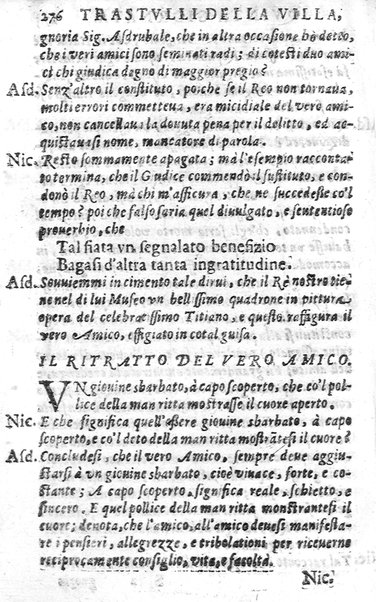 276 TRASTVLLI DELLA VILLA,
gnoria Sig. Asdrubale, che in altra occasione hò detto,
che i veri amici sono seminati radi; di cotesti duo ami-
ci chi giudica degno di maggior pregio?
Asd. Senz'altro il constituto, poiche se il Reo non tornaua,
molti errori commetteua, era micidiale del vero ami-
co, non cancellaua la douuta pena per il delitto, ed ac-
quistauasi nome, mancatore di parola.
Nic. Resto sommamente apagata; mà l'esempio racconta-
to termina, che il Giudice commendò il sustituto, e con-
donò il Reo, mà chi m'assicura, che ne succedesse co'l
tempo? poi che falso saria quel diuulgato, e sententioso
prouerbio, che
Tal fiata vn segnalato benefizio
Bagasi d'altra tanta ingratitudine.
Asd. Souuiemmi in cimento tale dirui, che il Rè nostro tie-
ne nel di lui Museo vn bellissimo quadrone in pittura,
opera del celebratissimo Titiano, e questo raffigura il
vero Amico, effigiato in cotal guisa.
IL RITRATTO DEL VERO AMICO.
VN giouine sbarbato, à capo scoperto, che co'l pol-
lice della man ritta mostrasse il cuore aperto.
Nic. E che significa quell'essere giouine sbarbato, à capo
scoperto, e co'l deto della man ritta mostrātesi il cuore?
Asd. Concludesi, che il vero Amico, sempre deue aggiu-
starsi à vn giouine sbarbato, cioè viuace, forte, e co-
stante; A capo scoperto, significa reale, schietto, e
sincero. E quel pollice della man ritta monstrantesi il
cuore; denota, che l'amico, all'amico deuesi manifesta-
re i pensieri, allegrezze, e tribolationi per riceuerne
reciprocamente consiglio, vita, e facoltà.
Nic.